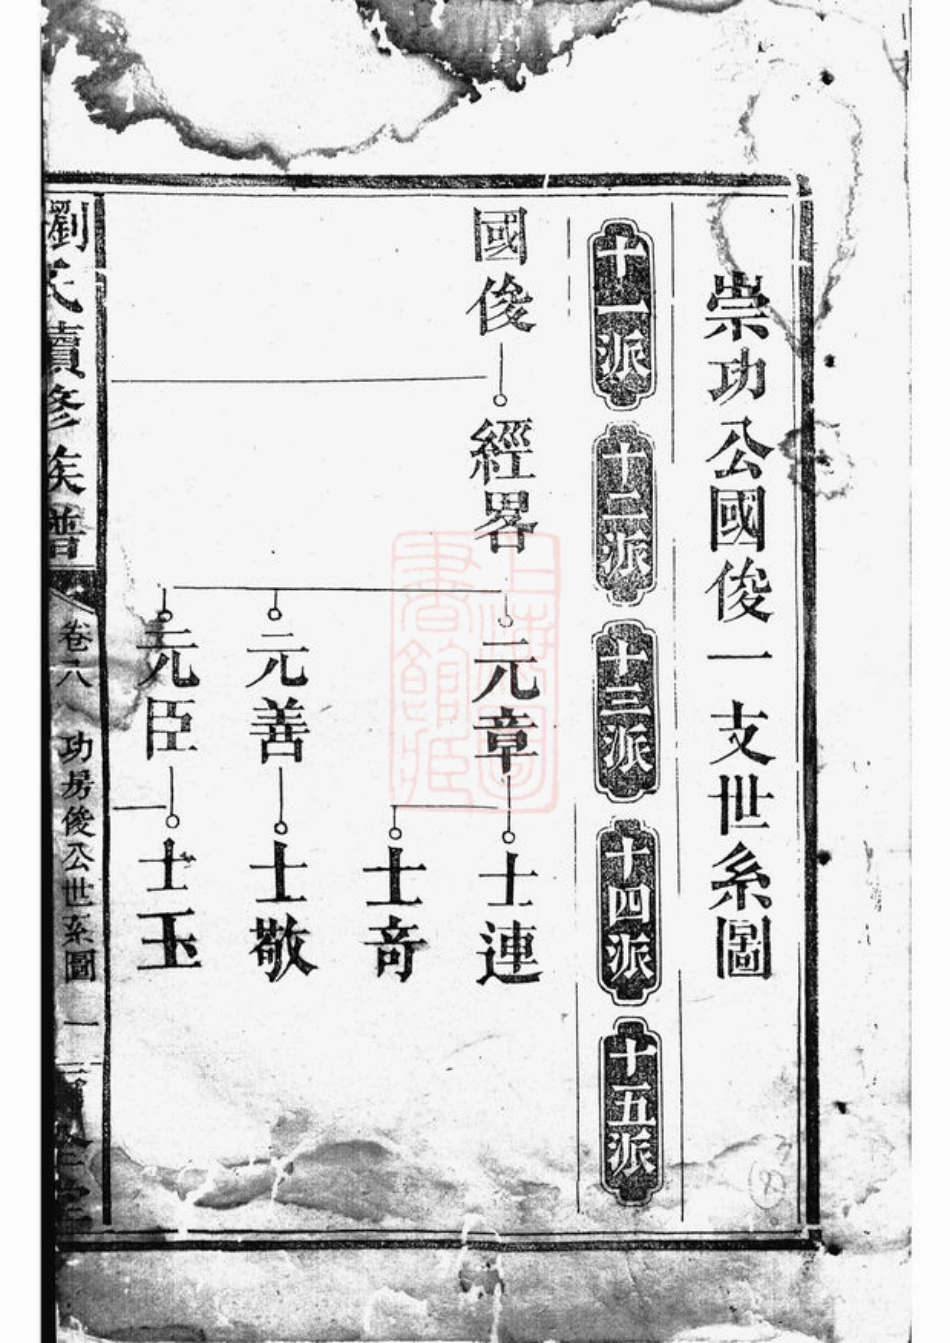 崇功公國俊一支世系圖
十一派
十二派
十三派
十四派
十五派
國俊
經畧
元章
士連
士奇
元善
士敬
元臣
士玉
劉氏續修族譜
卷八
功房俊公世系圖
一
上海圖書館藏